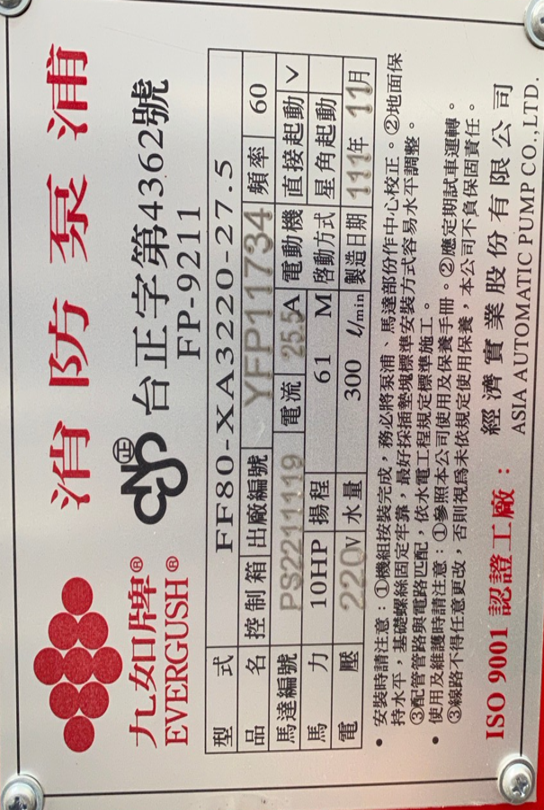 消防泵浦
九如牌® 台正字第4362號
EVERGUSH® FP-9211
型式 FF80-XA3220-27.5
品名 控制箱 出廠編號 YFP11734 頻率 60
馬達編號 PS2211119 電流 25.5A 電動機 直接起動 ✓
馬力 10HP 揚程 61 M 啓動方式 星角起動
電壓 220V 水量 300 ℓ/min 製造日期 111年 11月
• 安裝時請注意：①機組按裝完成，務必將泵浦、馬達部份作中心校正。②地面保
持水平，基礎螺絲固定牢靠，最好採插墊塊標準安裝方式容易水平調整。
③配管管路與電路匹配，依水電工程規定標準施工。
• 使用及維護時請注意：①參照本公司使用及保養手冊。②應定期試車運轉。
③線路不得任意更改，否則視為未依規定使用保養，本公司不負保固責任。
ISO 9001 認證工廠： 經濟實業股份有限公司
ASIA AUTOMATIC PUMP CO.,LTD.